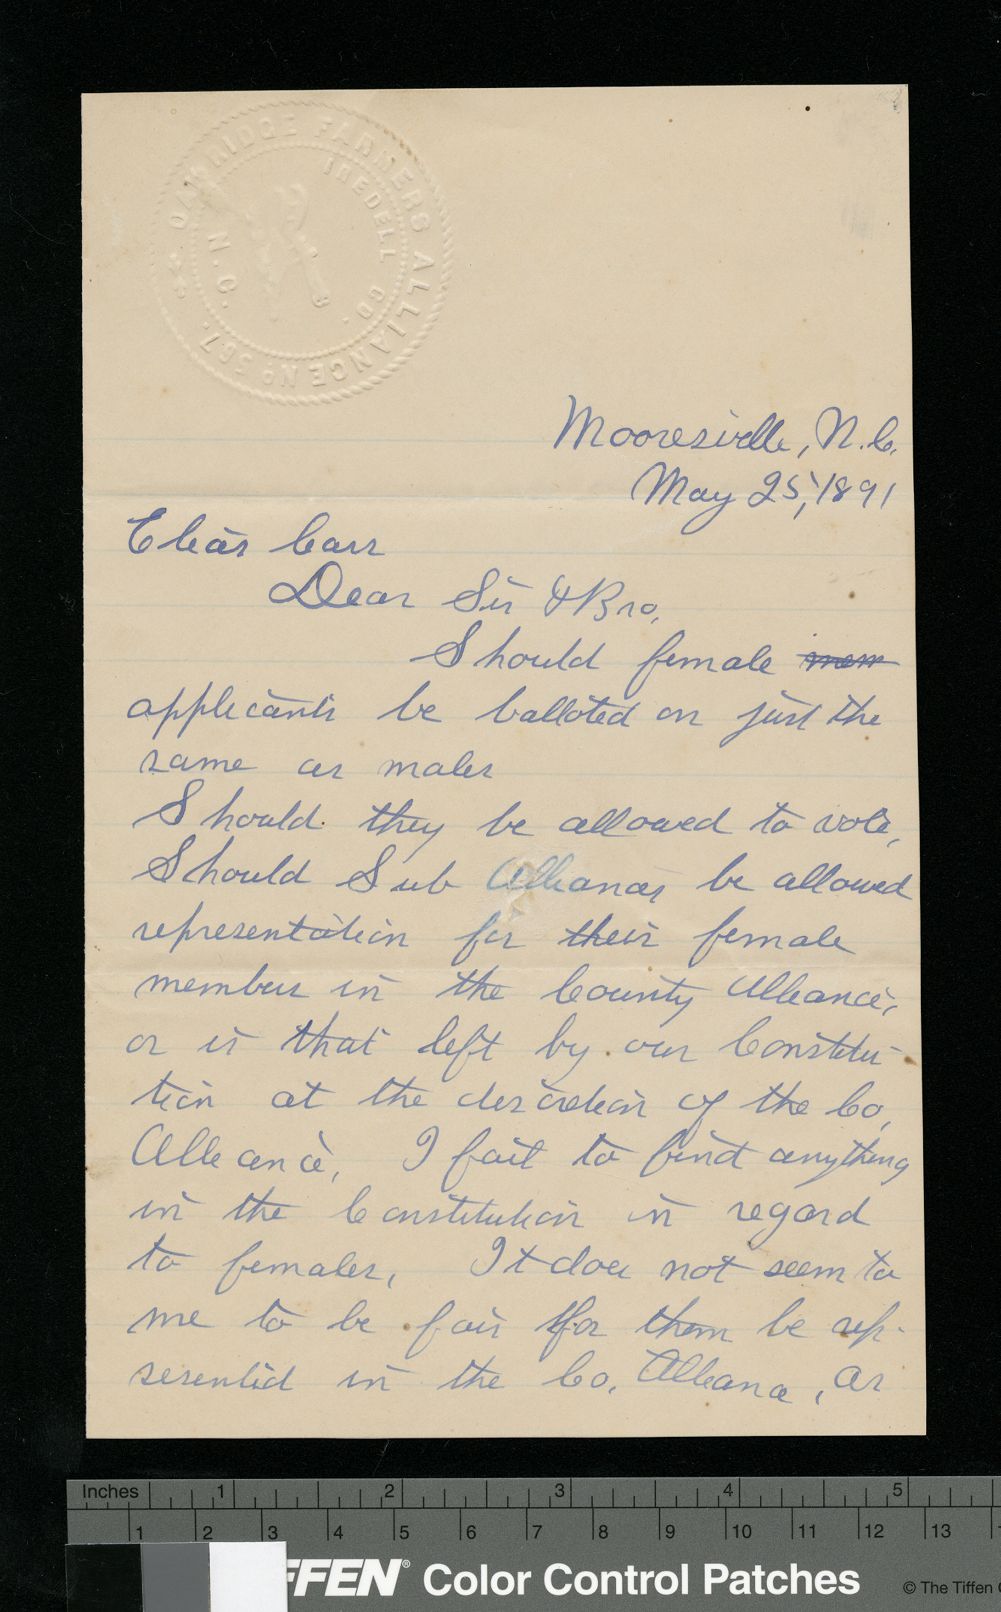 OAK RIDGE FARMERS ALLIANCE No. 567.
IREDELL CO. N.C.
Mooresville, N.C.
May 25, 1891
Elias Carr
Dear Sir & Bro.
Should female mem
applicants be balloted on just the
same as males
Should they be allowed to vote,
Should Sub Alliances be allowed
representation for their female
members in the County Alliance,
or is that left by our Constitu-
tion at the descretion of the Co,
Alliance, I fail to find anything
in the Constitution in regard
to females, It does not seem to
me to be fair for them be rep-
sesented in the Co. Alliance, as
Inches 1 2 3 4 5
1 2 3 4 5 6 7 8 9 10 11 12 13
FFEN® Color Control Patches © The Tiffen